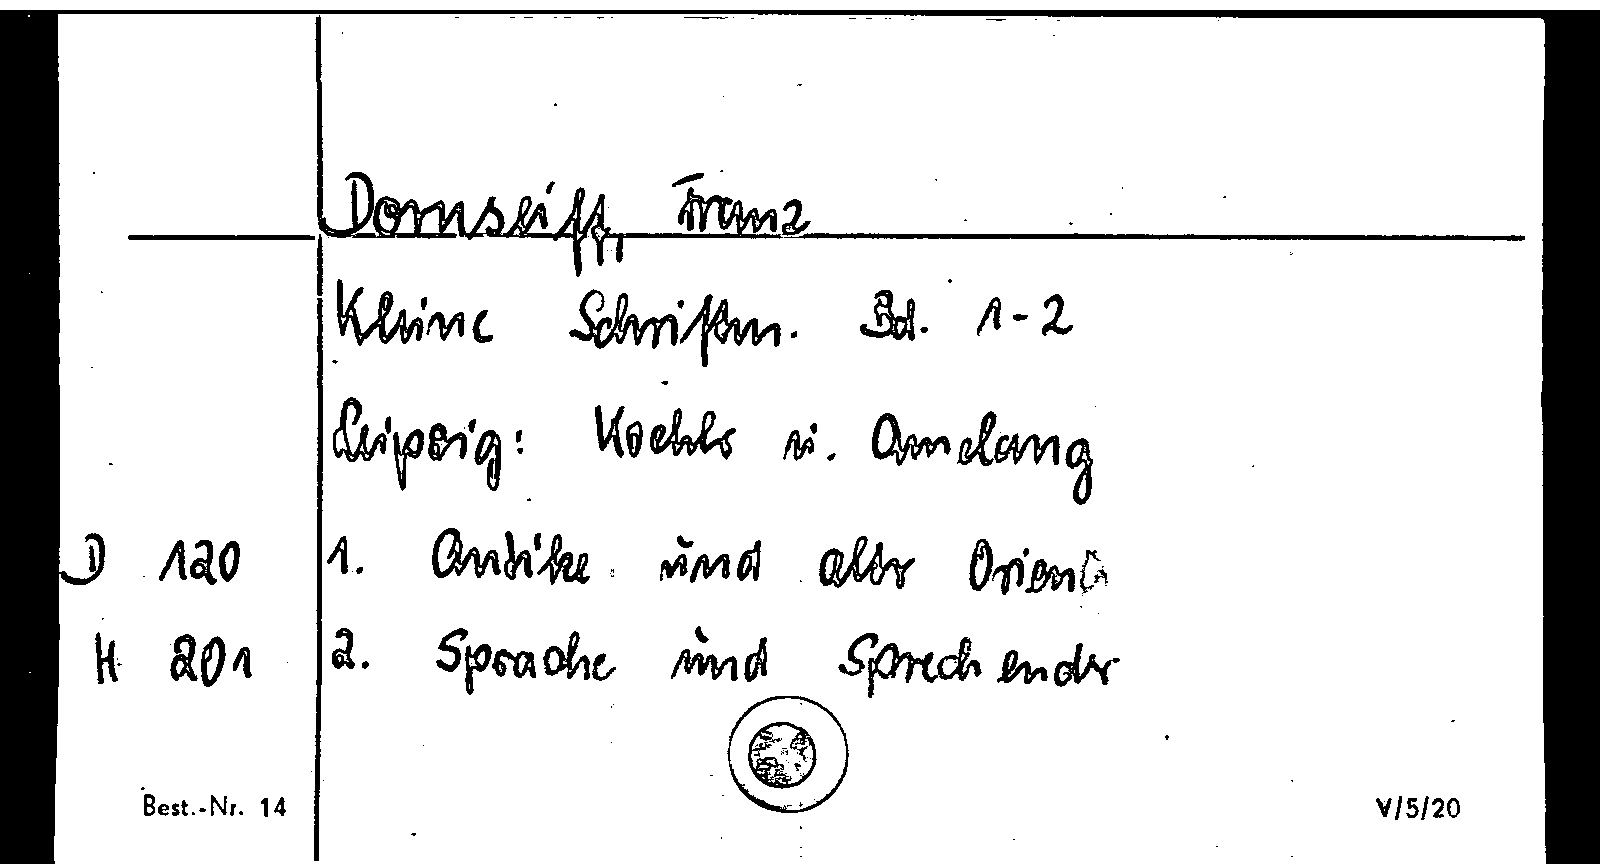 Dornseiff, Franz
Kleine Schriften. Bd. 1-2
Leipzig: Koehler u. Amelang
D 120 1. Antike und alter Orient
H 201 2. Sprache und Sprechender
Best.-Nr. 14 V/5/20